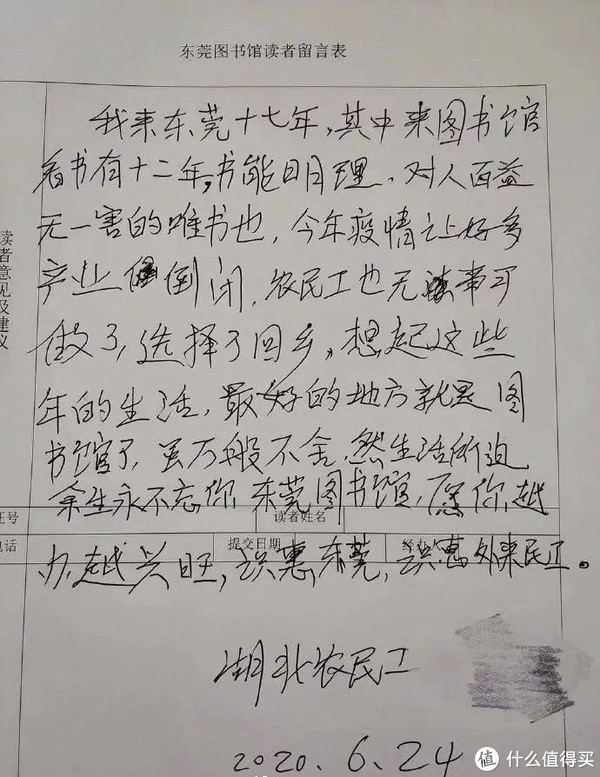 东莞图书馆读者留言表
我来东莞十七年,其中来图书馆
看书有十二年,书能明理、对人百益
无一害的唯书也,今年疫情让好多
产业倒闭,农民工也无事可
做了,选择了回乡。想起这些
年的生活,最好的地方就是图
书馆了,虽万般不舍,然生活所迫
余生永不忘你,东莞图书馆,愿你越
办越兴旺,识惠东莞,识惠外来民工。
湖北农民工
2020.6.24
读者意见及建议
证号
读者姓名
电话
提交日期
经办
值 什么值得买